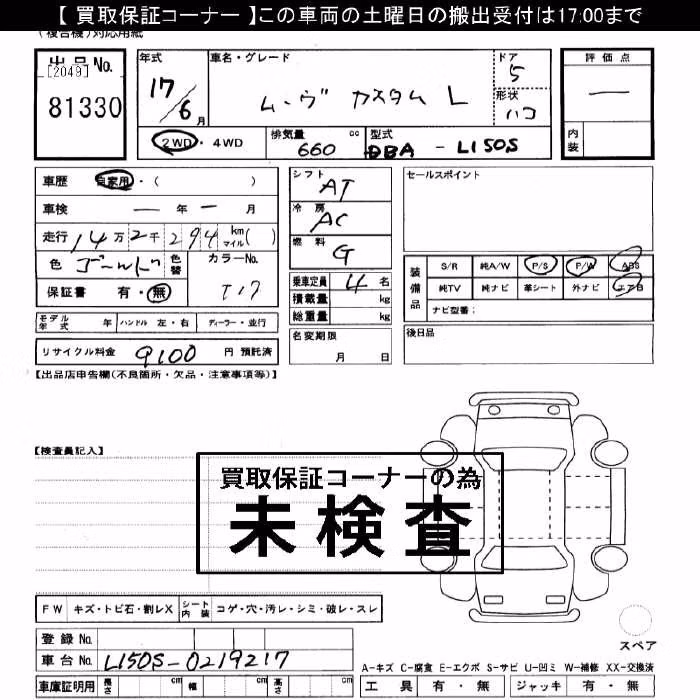 【 買取保証コーナー 】この車両の土曜日の搬出受付は17:00まで
(複合機)対応用紙
出品No. [2049] 81330
年式 17/6月
車名・グレード ムーヴ カスタム L
ドア 5
形状 ハコ
評価点 —
内装
2WD・4WD
排気量 660 cc
型式 DBA - L150S
車歴 自家用・( )
車検 — 年 — 月
走行 14万2千294 km マイル( )
色 ゴールド 色替
カラーNo. T17
保証書 有・無
シフト AT
冷房 AC
燃料 G
乗車定員 4 名
積載量 kg
総重量 kg
セールスポイント
装備品
S/R 純A/W P/S P/W ABS
純TV 純ナビ 革シート 外ナビ エアB
ナビ型番:
モデル年式 年 ハンドル 左・右 ディーラー・並行
名変期限 月 日
後日品
リサイクル料金 9100 円 預託済
【出品店申告欄(不良箇所・欠品・注意事項等)】
【検査員記入】
買取保証コーナーの為
未検査
FW キズ・トビ石・割レX シート内装 コゲ・穴・汚レ・シミ・破レ・スレ
スペア
登録No.
車台No. L150S-0219217
A-キズ C-腐食 E-エクボ S-サビ U-凹ミ W-補修 XX-交換済
車庫証明用 長さ cm 幅 cm 高さ cm
工具 有・無 ジャッキ 有・無